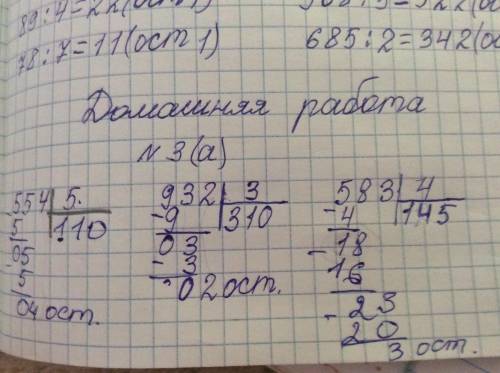 89:4=22(ост1)
78:7=11(ост1)
685:2=342(ос
Домашняя работа
N 3(а)
554 5.
5 110
05
5
04 ост.
932 3
-9 310
03
- 3
02 ост.
583 4
-4 145
-18
16
-23
20
3 ост.